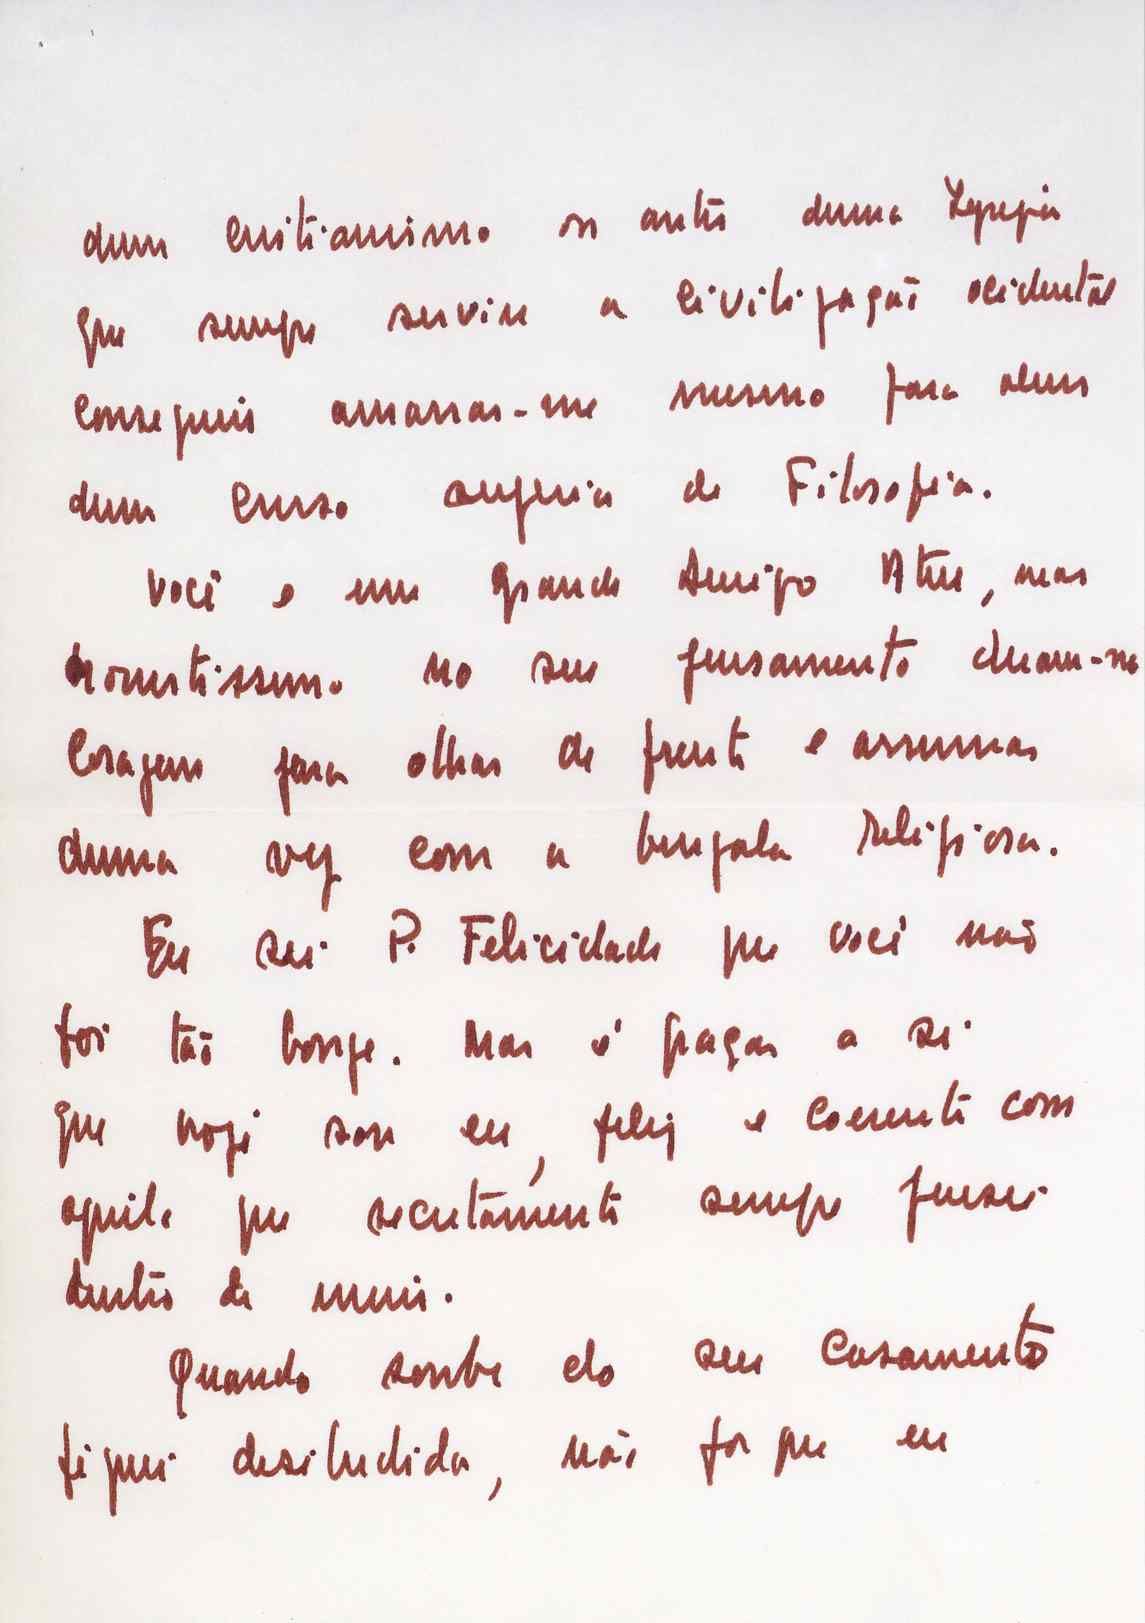 dum cristianismo ou antes duma Igreja
que sempre serviu a civilização ocidental
conseguiu amarrar-me mesmo para alem
dum curso superior de Filosofia.
Você e um grande Amigo Ateu, mas
honestissimo no seu pensamento deram-me
coragem para olhar de frente e assumar
duma vez com a bengala religiosa.
Eu sei P. Felicidade que você não
foi tão longe. Mas é graças a si
que hoje sou eu, feliz e coerente com
aquilo que secretamente sempre pensei
dentro de mim.
Quando soube do seu casamento
fiquei desiludida, não por que eu